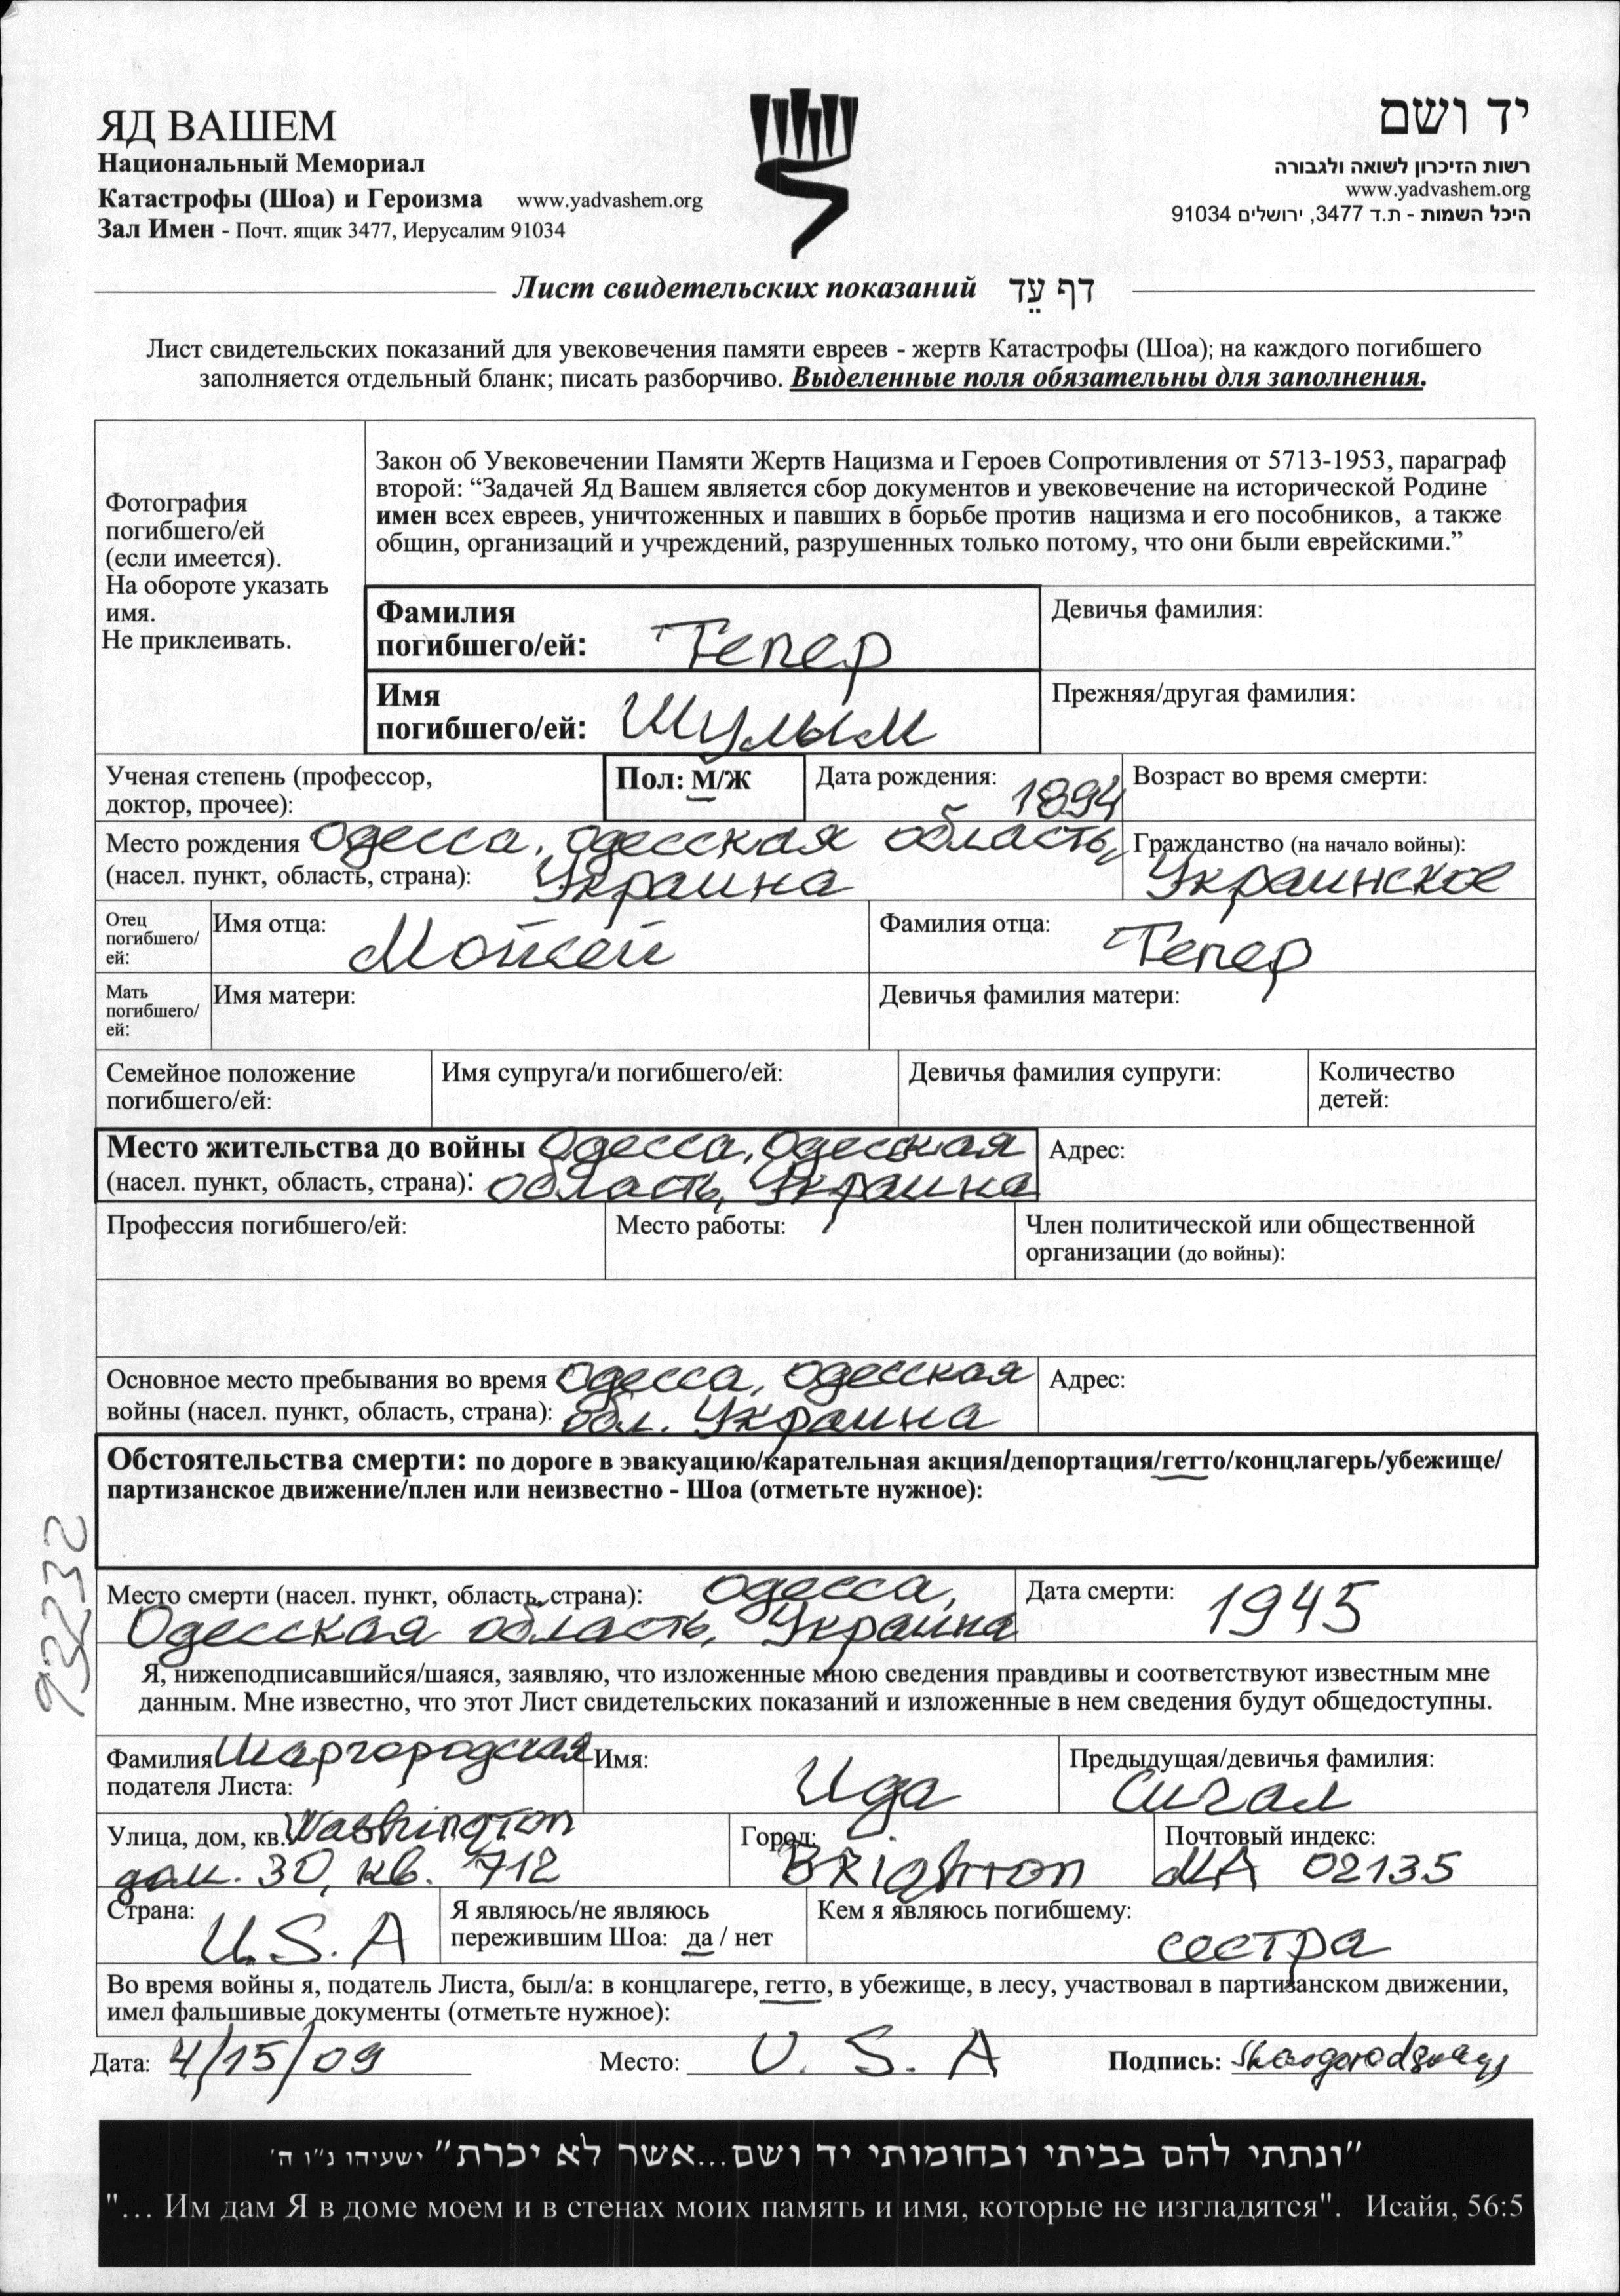 ЯД ВАШЕМ
Национальный Мемориал
Катастрофы (Шоа) и Героизма www.yadvashem.org
Зал Имен - Почт. ящик 3477, Иерусалим 91034
יד ושם
רשות הזיכרון לשואה ולגבורה
www.yadvashem.org
היכל השמות - ת.ד 3477, ירושלים 91034
Лист свидетельских показаний דף עֵד
Лист свидетельских показаний для увековечения памяти евреев - жертв Катастрофы (Шоа); на каждого погибшего
заполняется отдельный бланк; писать разборчиво. Выделенные поля обязательны для заполнения.
Фотография
погибшего/ей
(если имеется).
На обороте указать
имя.
Не приклеивать.
Закон об Увековечении Памяти Жертв Нацизма и Героев Сопротивления от 5713-1953, параграф
второй: “Задачей Яд Вашем является сбор документов и увековечение на исторической Родине
имен всех евреев, уничтоженных и павших в борьбе против нацизма и его пособников, а также
общин, организаций и учреждений, разрушенных только потому, что они были еврейскими.”
Фамилия
погибшего/ей: Тепер
Девичья фамилия:
Имя
погибшего/ей: Шулым
Прежняя/другая фамилия:
Ученая степень (профессор,
доктор, прочее):
Пол: М/Ж
Дата рождения: 1894
Возраст во время смерти:
Место рождения Одесса, одесская область,
(насел. пункт, область, страна): Украина
Гражданство (на начало войны):
Украинское
Отец
погибшего/
ей:
Имя отца: Мойсей
Фамилия отца: Тепер
Мать
погибшего/
ей:
Имя матери:
Девичья фамилия матери:
Семейное положение
погибшего/ей:
Имя супруга/и погибшего/ей:
Девичья фамилия супруги:
Количество
детей:
Место жительства до войны Одесса, Одесская
(насел. пункт, область, страна): область, Украина
Адрес:
Профессия погибшего/ей:
Место работы:
Член политической или общественной
организации (до войны):
Основное место пребывания во время Одесса, одесская
войны (насел. пункт, область, страна): обл. Украина
Адрес:
Обстоятельства смерти: по дороге в эвакуацию/карательная акция/депортация/гетто/концлагерь/убежище/
партизанское движение/плен или неизвестно - Шоа (отметьте нужное):
93232
Место смерти (насел. пункт, область, страна): одесса,
Одесская область, Украина
Дата смерти: 1945
Я, нижеподписавшийся/шаяся, заявляю, что изложенные мною сведения правдивы и соответствуют известным мне
данным. Мне известно, что этот Лист свидетельских показаний и изложенные в нем сведения будут общедоступны.
Фамилия Шаргородская
подателя Листа:
Имя: Ида
Предыдущая/девичья фамилия:
Сигал
Улица, дом, кв. Washington
дом. 30, кв. 712
Город:
Brighton
Почтовый индекс:
MA 02135
Страна:
U.S.A
Я являюсь/не являюсь
пережившим Шоа: да / нет
Кем я являюсь погибшему:
сестра
Во время войны я, податель Листа, был/а: в концлагере, гетто, в убежище, в лесу, участвовал в партизанском движении,
имел фальшивые документы (отметьте нужное):
Дата: 4/15/09 Место: U.S.A Подпись:
״ונתתי להם בביתי ובחומותי יד ושם...אשר לא יכרת״ ישעיהו נ״ו ה׳
"... Им дам Я в доме моем и в стенах моих память и имя, которые не изгладятся". Исайя, 56:5